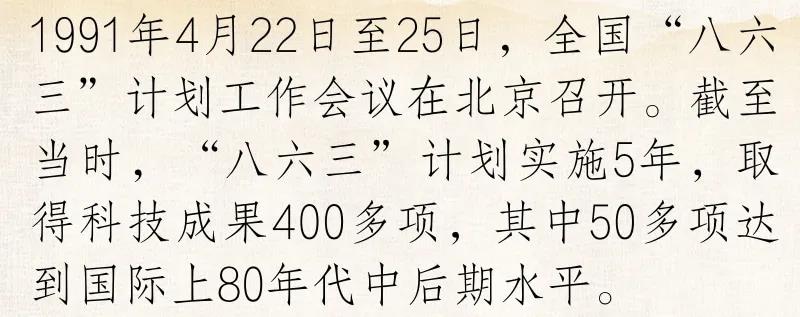 1991年4月22日至25日，全国“八六
三”计划工作会议在北京召开。截至
当时，“八六三”计划实施5年，取
得科技成果400多项，其中50多项达
到国际上80年代中后期水平。